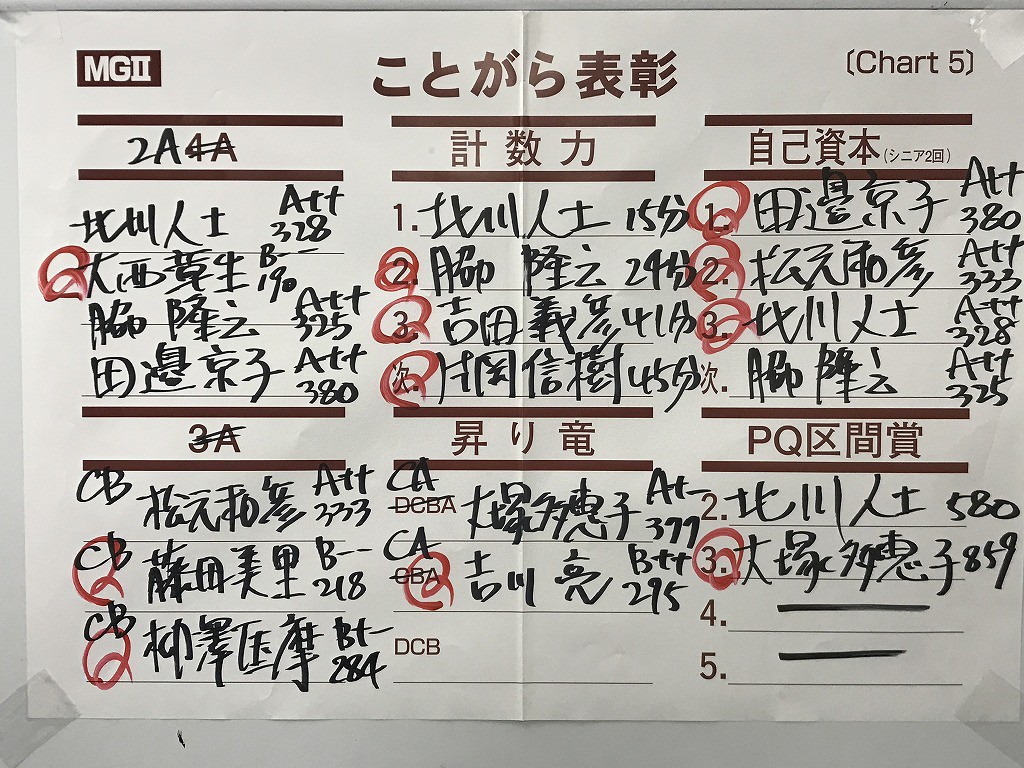 MGⅡ
ことがら表彰
〔Chart 5〕
2A 4A
北川人士 A++ 328
大西章生 B-- 190
脇 隆云 A++ 325
田邉京子 A++ 380
計数力
1. 北川人士 15分
2. 脇 隆云 24分
3. 吉田義彦 41分
次. 片岡信樹 45分
自己資本(シニア2回)
1. 田邉京子 A++ 380
2. 松元和彦 A++ 333
3. 北川人士 A++ 328
次. 脇 隆云 A++ 325
3A
CB 松元和彦 A++ 333
CB 藤田美里 B-- 218
CB 柳澤 摩 B+- 284
昇り竜
CA DCBA 大塚多恵子 A+- 377
CA CBA 吉川 亮 B++ 295
DCB
PQ区間賞
2. 北川人士 580
3. 大塚多恵子 859
4.
5.